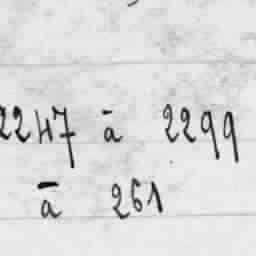 2247 à 2299
à 261